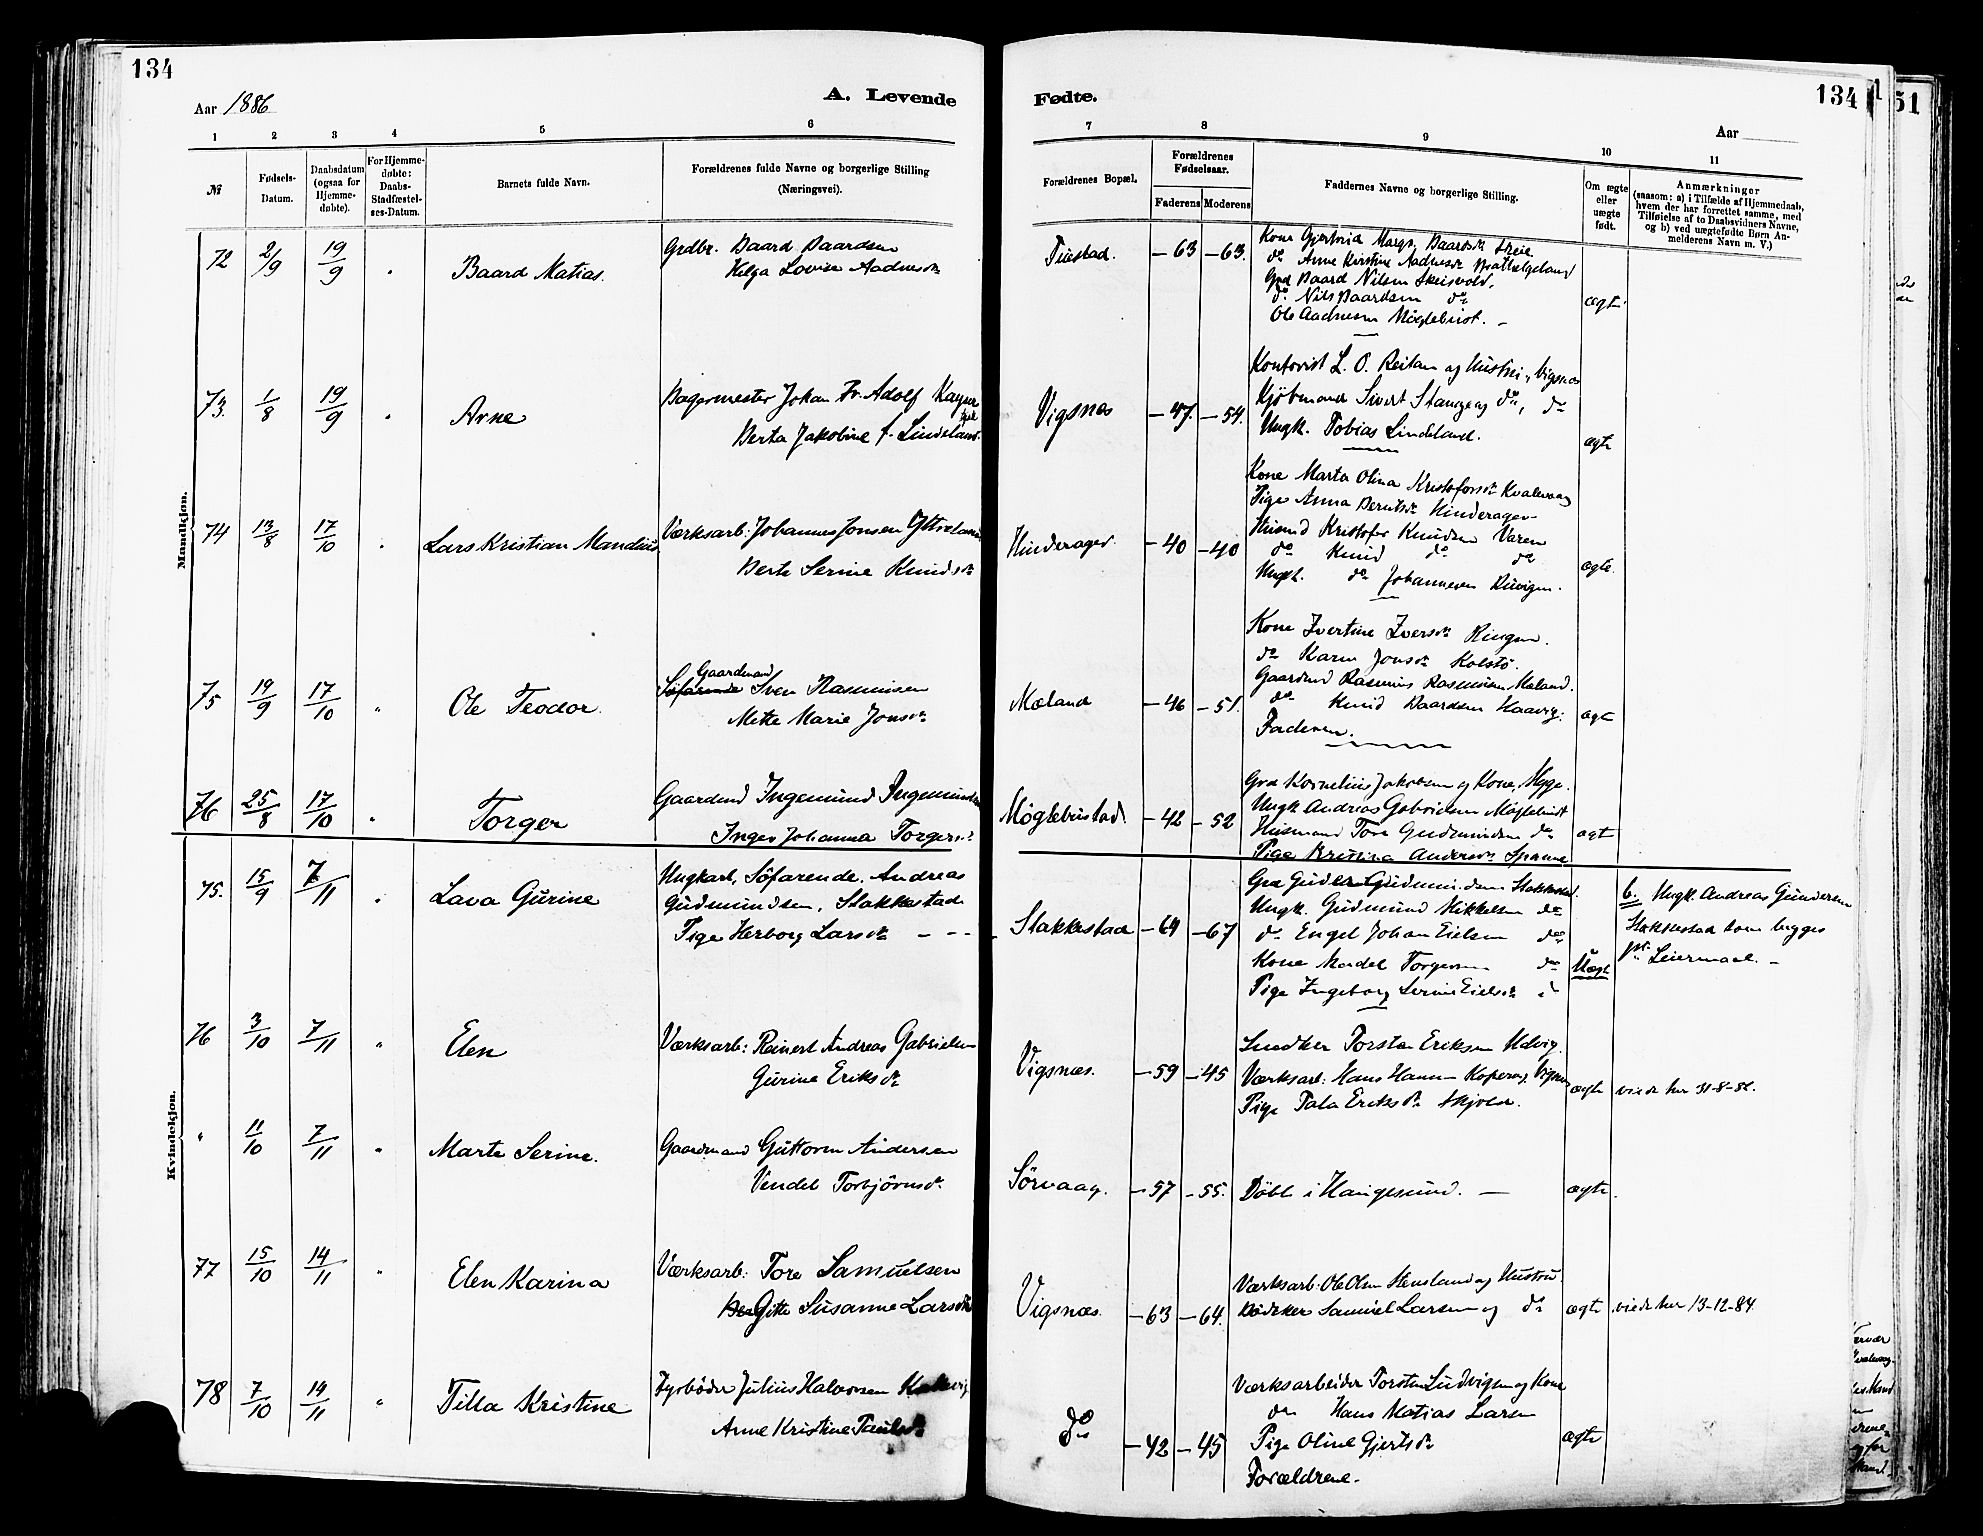 134
Aar 1886
A. Levende
1 2 3 4 5 6
№
Fødsels-
Datum.
Daabsdatum
(ogsaa for
Hjemme-
døbte).
For Hjemme-
døbte:
Daabs-
Stadfæstel-
ses-Datum.
Barnets fulde Navn.
Forældrenes fulde Navne og borgerlige Stilling
(Næringsvei).
Mandkjøn.
72 2/9 19/9 " Baard Matias.
Grdbr. Baard Baardsen
Helga Lovise Aadnesdr
73. 1/8 19/9 " Arne
Bagermester Johan Fr. Adolf Kayser
Berta Jakobine f. Lindeland.
74 13/8 17/10 " Lars Kristian Mandius
Værksarb: Johannes Jonsen
Berte Serine Knudsdr
75 19/9 17/10 " Ole Teodor.
Gaardmand
Søfarende Sven Rasmusen
Mette Marie Jonsdr
76 25/8 17/10 " Torger
Gaardmd Ingemund Ingemundsen
Inger Johanna Torgersdr
Kvindekjøn.
75. 15/9 7/11 " Lava Gurine
Ungkarl, Søfarende. Andreas
Gudmundsen, Stakkestad
Pige Herborg Larsdr - - -
76 3/10 7/11 " Elen
Værksarb: Reinert Andreas Gabrielsen
Gurine Eriksdr
" 11/10 7/11 " Marte Serine.
Gaardmand Guttorm Andersen
Vendel Torbjørnsdr
77 15/10 14/11 " Elen Karina
Værksarb: Tore Samuelsen
Gitte Susanne Larsdr
78 7/10 14/11 " Tilla Kristine
Fyrbøder Julius Halvorsen
Anne Kristine Paulsdr
Fødte.
134
Aar
7 8 9 10 11
Forældrenes Bopæl.
Forældrenes
Fødselsaar.
Faderens Moderens
Faddernes Navne og borgerlige Stilling.
Om ægte
eller
uægte
født.
Anmærkninger
(saasom: a) i Tilfælde af Hjemmedaab,
hvem der har forrettet samme, med
Tilføielse af to Daabsvidners Navne,
og b) ved uægtefødte Børn An-
melderens Navn m. V.)
- 63 - 63.
Kone Gjertrud Margr. Baardsdr
do Anne Kirstine Aadnesdr
Grd Baard Nilsen Skeisvold,
do Nils Baardsen do
Ole Aadnesen Møglebust. -
ægte
Vigsnæs - 47. - 54.
Kontorist L. O. Reitan og Hustru, Vigsnæs
Kjøbmand Sivert Stange og do, do
Ungk. Tobias Lindeland.
ægte
Hinderager - 40 - 40
Kone Marta Olina Kristofersdr Kvalevaag
Pige Anna Berntsdr Hinderager
Husmd Kristofer Knudsen Varen
do Knud do do
Ungk. do Johannesen
ægte.
Mæland - 46 - 51.
Kone Ivertine Iversdr Ringen.
do Karen Jonsdr Kolstø.
Gaardmd Rasmus Rasmusen Mæland.
do Knud Baardsen Haavig.
Faderen.
ægte
Møglebustad. - 42 - 52
Grd Kornelius Jakobsen og Kone, Myge.
Ungk Andreas Gabrielsen Møglebust
Husmand Tore Gudmundsen do
Pige Kristina Andersdr Spanne
ægte
Stakkestad - 64 - 67
Ungk. Gudmund Mikkelsen do
do Engel Johan Eielsen do
Kone Madel Torgersen do
Pige Ingeborg Serine Eielsdr do
Uægte
b. Ungk. Andreas Gundersen
Stakkestad
Leiermaal. -
Vigsnæs. - 59 - 45
Snedker Torsten Eriksen Udvig.
Værksarb: Hans Hansen Kopervig, Vigsnæs
Pige Tala Eriksdr Skjold.
ægte
viede her 31-8-84.
Sørvaag. - 57 - 55.
Døbt i Haugesund. -
ægte.
Vigsnæs. - 63 - 64.
Værksarb: Ole Olsen Stensland og Hustru
Bødker Samuel Larsen og do
ægte
viede her 13-12-84.
do - 42 - 45
Værksarbeider Torsten Ludvigsen og Kone
do Hans Matias Larsen
Pige Oline Gjertsdr
Forældrene.
ægte
51